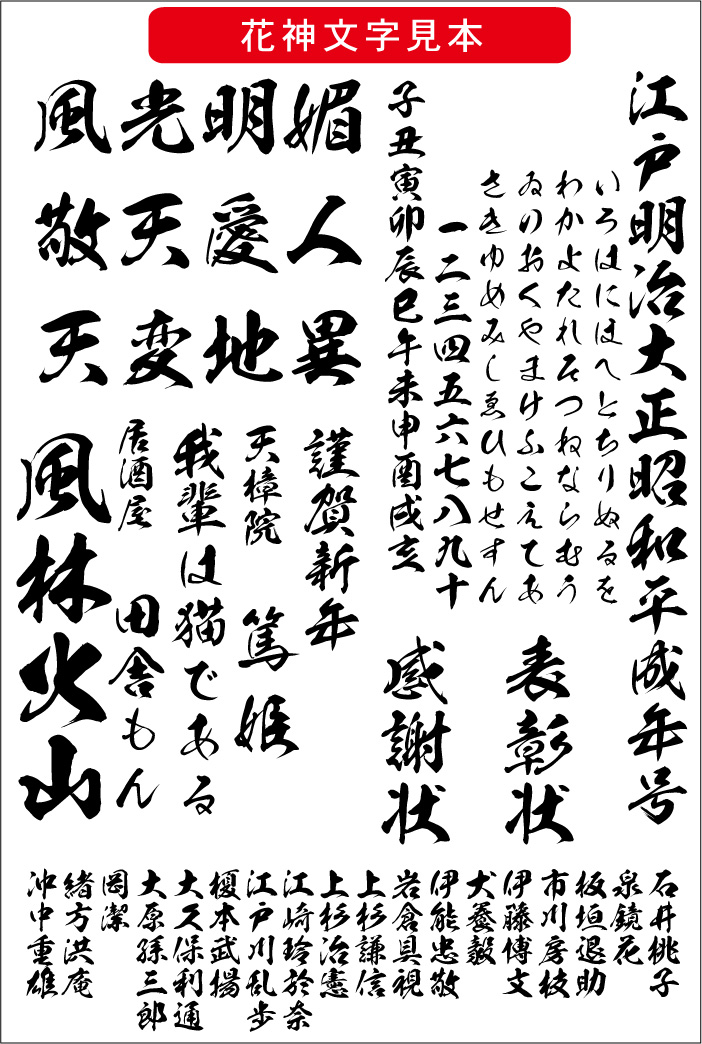 花神文字見本
江戸明治大正昭和平成年号
いろはにほへとちりぬるを
わかよたれそつねならむう
ゐのおくやまけふこえてあ
さきゆめみしゑひもせすん
一二三四五六七八九十
子丑寅卯辰巳午未申酉戌亥
表彰状
感謝状
風光明媚
敬天愛人
天変地異
謹賀新年
天樟院 篤姫
我輩は猫である
居酒屋 田舎もん
風林火山
石井桃子
泉鏡花
板垣退助
市川房枝
伊藤博文
犬養毅
伊能忠敬
岩倉具視
上杉謙信
上杉治憲
江崎玲於奈
江戸川乱歩
榎本武揚
大久保利通
大原孫三郎
岡潔
緒方洪庵
沖中重雄